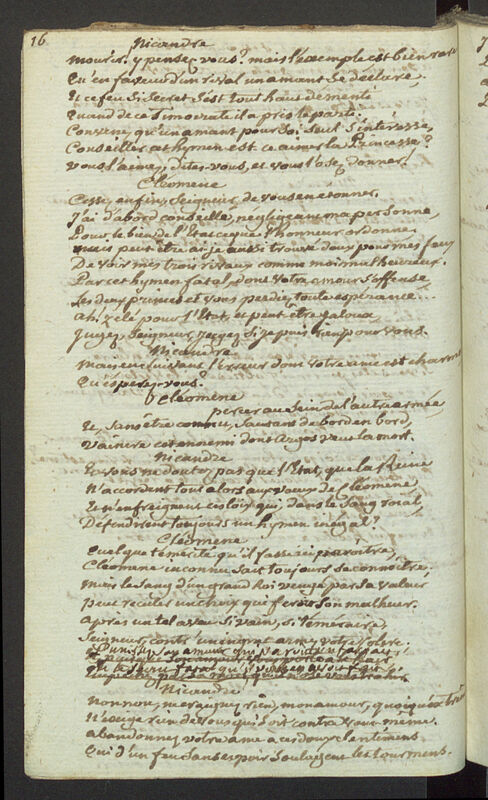 16
Nicandre
mourir, y pensez vous? mais l'exemple est bien rare
Qu'en faveur d'un rival un amant se déclare,
Et ce feu si secret s'est tout haut démenti
Quand de ce Timocrate il a pris le parti.
Convenez, qu'un amant pour soi seul s'intéresse,
Conseiller cet hymen est-ce aimer la Princesse?
Vous l'aimez, dites-vous, et vous l'osez donner!
Cléomène
Cessez enfin, Seigneur, de vous en étonner.
J'ai d'abord conseillé, négligeant ma personne,
Pour le bien de l'Etat ce que l'honneur ordonne
mais peut être ai-je aussi trouvé doux pour mes feux
De voir mes trois rivaux comme moi malheureux.
Par cet hymen fatal, dont votre amour s'offense
Les deux princes et vous perdiez toute espérance...
Ah! zélé pour l'Etat, et peut être jaloux,
Jugez, Seigneur, jugez si je puis rien pour vous.
Nicandre
Mais en suivant l'erreur dont votre ame est charmée
Qu'espérez-vous.
Cléomène
percer au sein de l'autre armée
Et, sans être connu, sautant de bord en bord,
Vaincre cet ennemi dont Argos veut la mort.
Nicandre
Et vous ne doutez pas que l'Etat, que la Reine
N'accordent tout alors aux voeux de Cléomène,
Et n'enfreignent ces loix qui, dans le sang roial,
Défendirent toujours un hymen inégal?
Cléomène
Quelque témérité qu'il fasse ici paroître,
Cléomène inconnu sait toujours se connoître,
Mais le sang d'un grand Roi vengé par sa valeur
peut reculer un choix qui feroit son malheur.
Après un tel aveu si vain, si téméraire,
Seigneur, contre un ingrat armez votre colère.
Nicandre
Non non, ne craignez rien, mon amour, quoiqu'extrême
N'exige rien de vous qui soit contre vous même.
abandonnez votre ame à ces doux sentimens
Qui d'un feu sans espoir soulagent les tourmens.